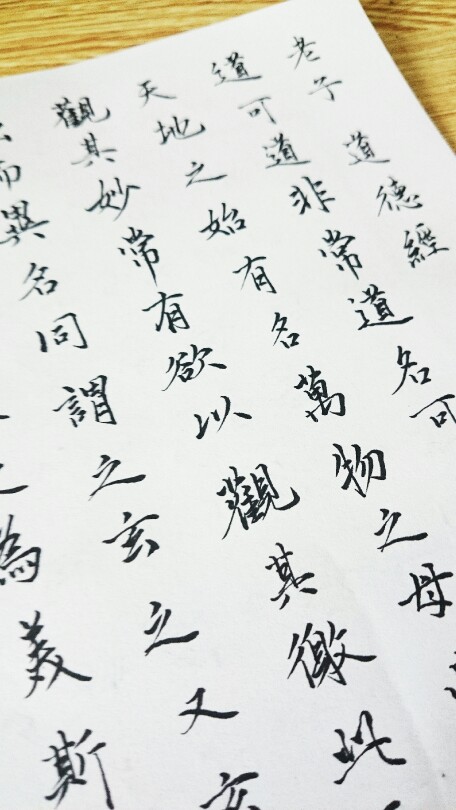 老子 道德經
道可道非常道名可
天地之始有名萬物之母
觀其妙常有欲以觀其徼此
而異名同謂之玄之又玄
之為美斯